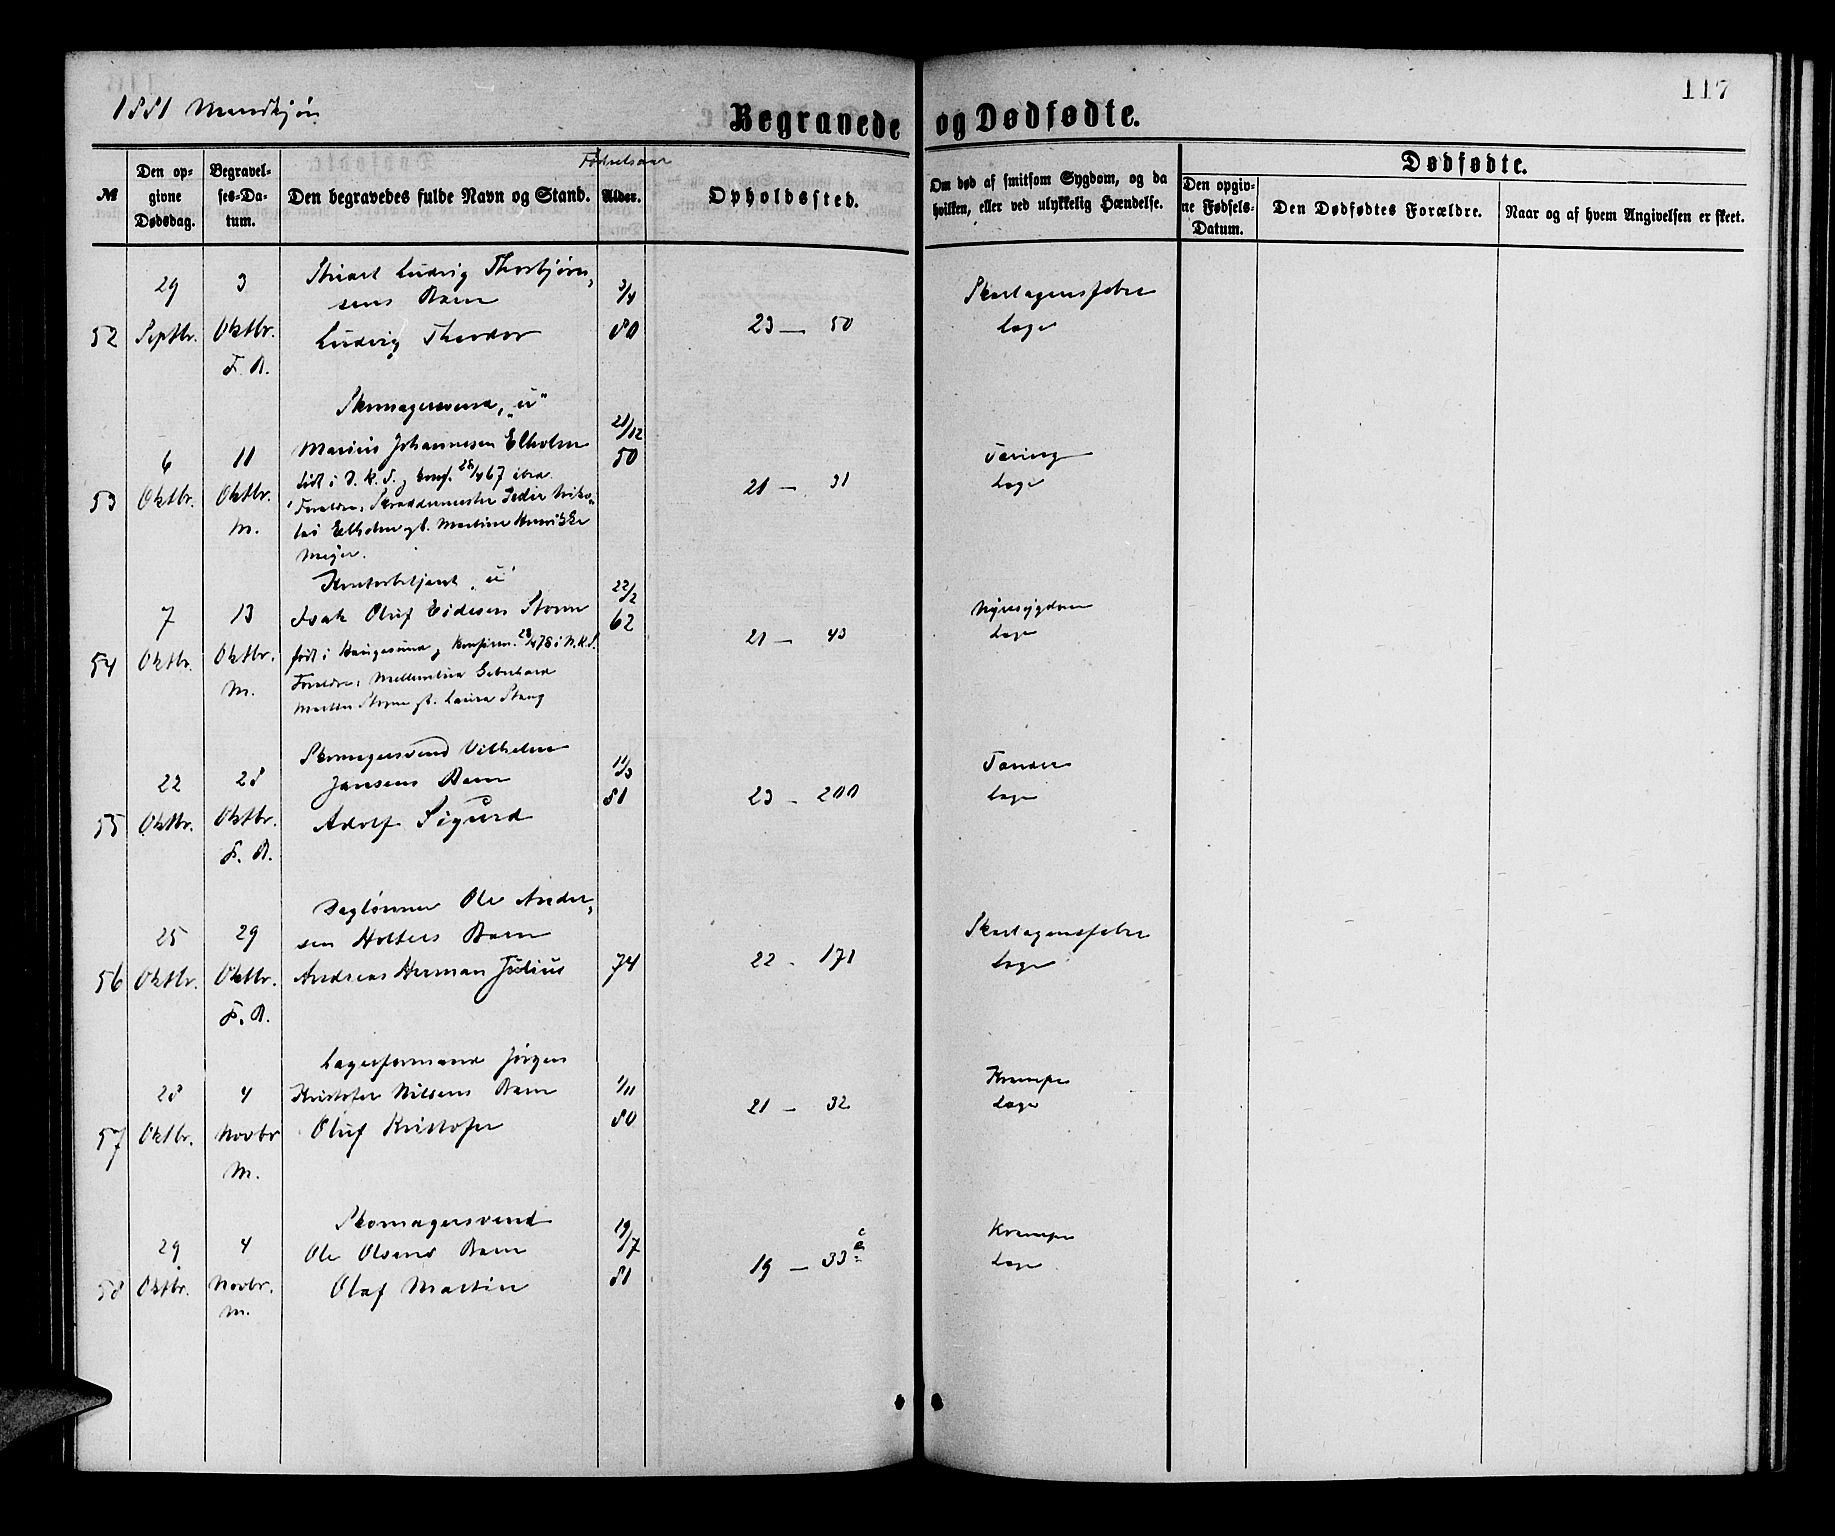 117
1881 Mandkjøn
Begravede og Dødfødte.
№
Den opgivne Dødsdag.
Begravelses-Datum.
Den begravedes fulde Navn og Stand.
Fødselsaar
Alder.
Opholdssted.
Om død af smitsom Sygdom, og da hvilken, eller ved ulykkelig Hændelse.
Dødfødte.
Den opgivne Fødsels-Datum.
Den Dødfødtes Forældre.
Naar og af hvem Angivelsen er skeet.
52
29 Septbr.
3 Oktbr.
F. B.
Ludvig Thorbjørn-
sens Barn
Ludvig Theodor
3/4 80
23 — 50
Skarlagensfeber
Læge
53
6 Oktbr.
11 Oktbr.
M.
Skomagersvend, „u“
Marius Johannesen Elholm
født i D. K. S., konf. 28/4 67 ibid.
Forældre: Skræddermester Peder
Elholm gb. Martine Henrikke
Meyer.
21/12 50
21 — 31
Tæring
Læge
54
7 Oktbr.
13 Oktbr.
M.
Kontorbetjent „u“
Isak Oluf Eidesen Storm
født i Haugesund, konfirm. 28/4 78 i D.K.S.
Forældre: Gerhard
Storm gb. Laura Stang
22/2 62
21 — 43
Nyresygdom
Læge
55
22 Oktbr.
28 Oktbr.
F. B.
Skomagersvend Vilhelm
Jansens Barn
Adolf Sigurd
11/3 81
23 - 200
Tænder
Læge
56
25 Oktbr.
29 Oktbr.
F. B.
Daglønner Ole Ander-
sen Holters Barn
Andreas Herman Julius
74
22 - 171
Skarlagensfeber
Læge
57
28 Oktbr.
4 Novbr
M.
Lagerformand Jørgen
Kristofer Nilsens Barn
Oluf Kristofer
1/11 80
21 — 32
Krampe
Læge
58
29 Oktbr.
4 Novbr.
M.
Skomagersvend
Ole Olsens Barn
Olaf Martin
19/7 81
19 — 33
Krampe
Læge